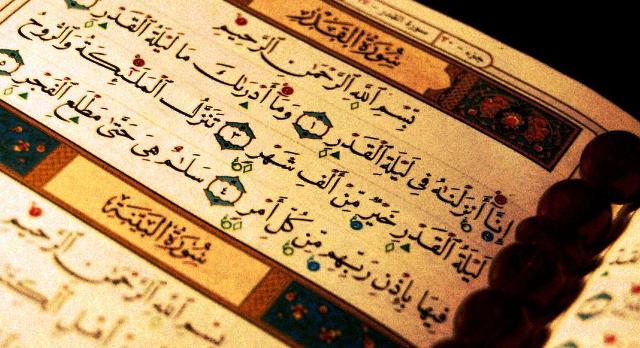 جزء ٣٠ سورة القدر
سُورَةُ القَدرِ
بِسْمِ اللَّهِ الرَّحْمَٰنِ الرَّحِيمِ
إِنَّا أَنزَلْنَٰهُ فِى لَيْلَةِ الْقَدْرِ ١ وَمَا أَدْرَىٰكَ مَا لَيْلَةُ الْقَدْرِ
لَيْلَةُ الْقَدْرِ خَيْرٌ مِّنْ أَلْفِ شَهْرٍ ٣ تَنَزَّلُ الْمَلَٰٓئِكَةُ وَالرُّوحُ
فِيهَا بِإِذْنِ رَبِّهِم مِّن كُلِّ أَمْرٍ ٤ سَلَٰمٌ هِىَ حَتَّىٰ مَطْلَعِ الْفَجْرِ
سُورَةُ البَيِّنَةِ
بِسْمِ اللَّهِ الرَّحْمَٰنِ الرَّحِيمِ
أَهْلِ الْكِتَٰبِ